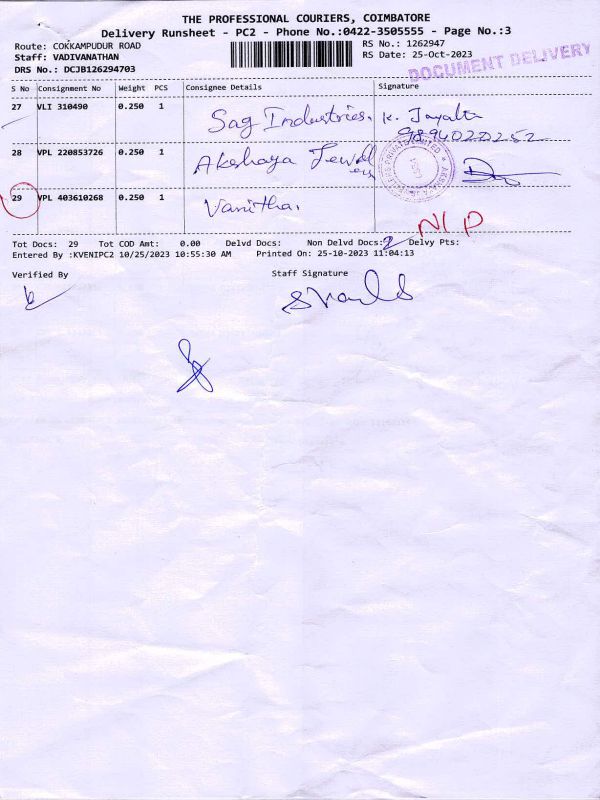 THE PROFESSIONAL COURIERS, COIMBATORE
Delivery Runsheet - PC2 - Phone No.:0422-3505555 - Page No.:3
Route: COKKAMPUDUR ROAD
Staff: VADIVANATHAN
DRS No.: DCJB126294703
RS No.: 1262947
RS Date: 25-Oct-2023
DOCUMENT DELIVERY
S No Consignment No Weight PCS Consignee Details Signature
27 VLI 310490 0.250 1 Sag Industries. K. Jayalt
9894020252
28 VPL 220853726 0.250 1 Akshaya Jewellers
29 VPL 403610268 0.250 1 Vanitha.
N/P
Tot Docs: 29 Tot COD Amt: 0.00 Delvd Docs: Non Delvd Docs: 2 Delvy Pts:
Entered By :KVENIPC2 10/25/2023 10:55:30 AM Printed On: 25-10-2023 11:04:13
Verified By Staff Signature